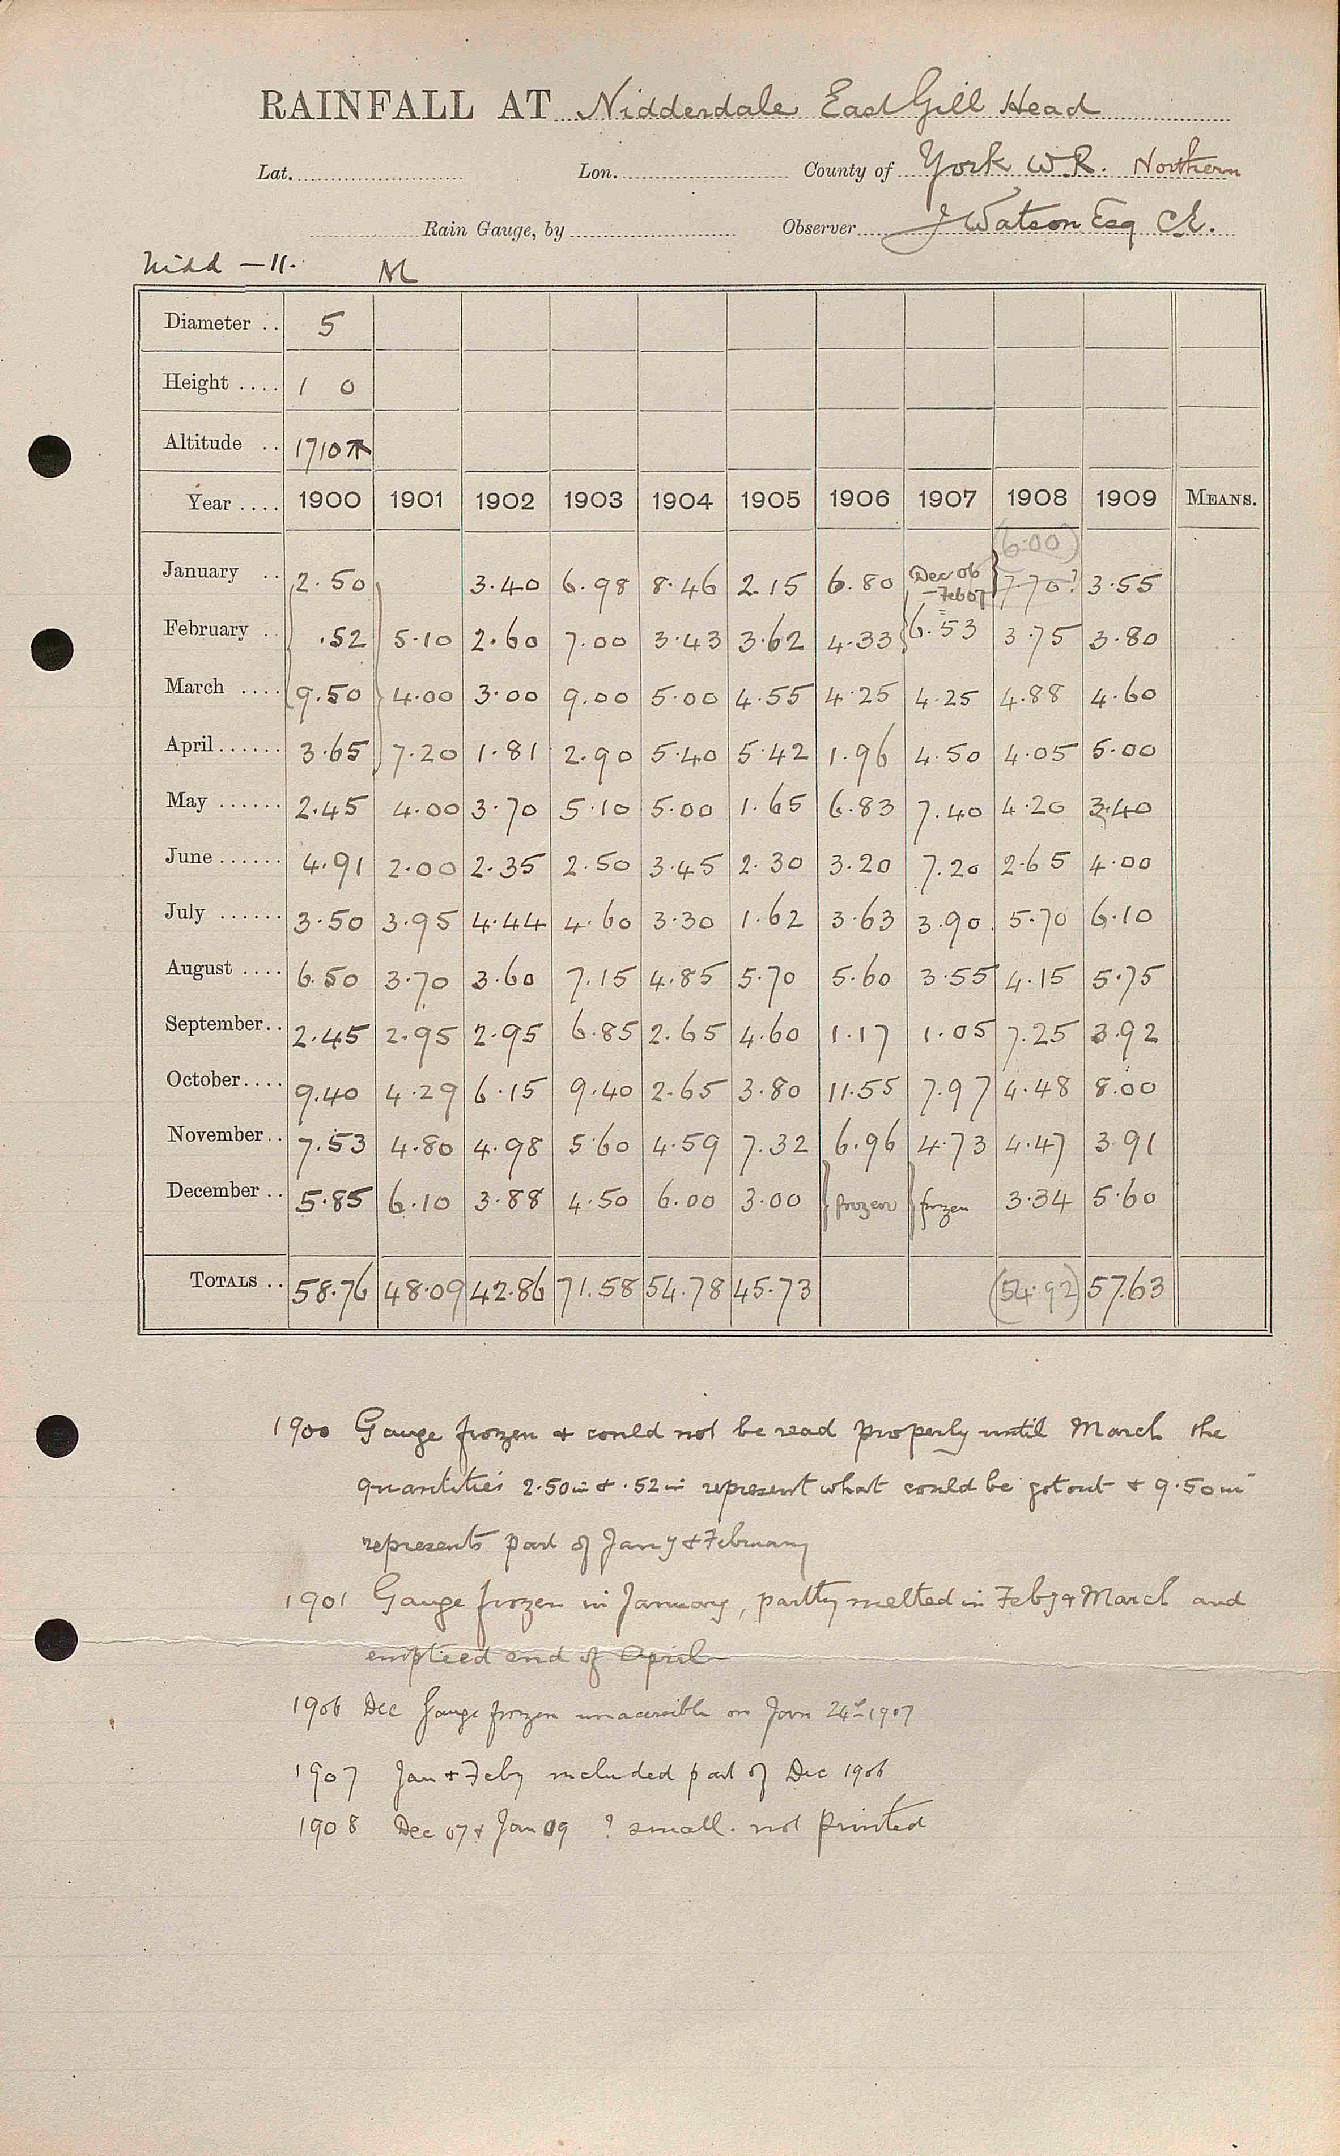 RAINFALL AT Nidderdale East Gill Head
Lat. Lon. County of York W.R. Northern
Rain Gauge, by Observer J Watson Esq CE.
Nidd - 11. M
Diameter .. 5
Height .... 1 0
Altitude .. 1710
Year .... 1900 1901 1902 1903 1904 1905 1906 1907 1908 1909 MEANS.
(6.00)
January .. 2.50 3.40 6.98 8.46 2.15 6.80 Dec 06 - Feb 07 7.70? 3.55
February .. .52 5.10 2.60 7.00 3.43 3.62 4.33 6.53 3.75 3.80
March .... 9.50 4.00 3.00 9.00 5.00 4.55 4.25 4.25 4.88 4.60
April ...... 3.65 7.20 1.81 2.90 5.40 5.42 1.96 4.50 4.05 5.00
May ...... 2.45 4.00 3.70 5.10 5.00 1.65 6.83 7.40 4.20 3.40
June ...... 4.91 2.00 2.35 2.50 3.45 2.30 3.20 7.20 2.65 4.00
July ...... 3.50 3.95 4.44 4.60 3.30 1.62 3.63 3.90 5.70 6.10
August .... 6.50 3.70 3.60 7.15 4.85 5.70 5.60 3.55 4.15 5.75
September.. 2.45 2.95 2.95 6.85 2.65 4.60 1.17 1.05 7.25 3.92
October.... 9.40 4.29 6.15 9.40 2.65 3.80 11.55 7.97 4.48 8.00
November.. 7.53 4.80 4.98 5.60 4.59 7.32 6.96 4.73 4.47 3.91
December .. 5.85 6.10 3.88 4.50 6.00 3.00 frozen frozen 3.34 5.60
TOTALS .. 58.76 48.09 42.86 71.58 54.78 45.73 (54.92) 57.63
1900 Gauge frozen & could not be read properly until March the
quantities 2.50in & .52in represent what could be got out & 9.50in
represents part of Jany & February
1901 Gauge frozen in January, partly melted in Feby & March and
emptied end of April
1906 Dec Gauge frozen unaccessible on Jan 24th 1907
1907 Jan & Feby included part of Dec 1906
1908 Dec 07 & Jan 09 ? small. not printed